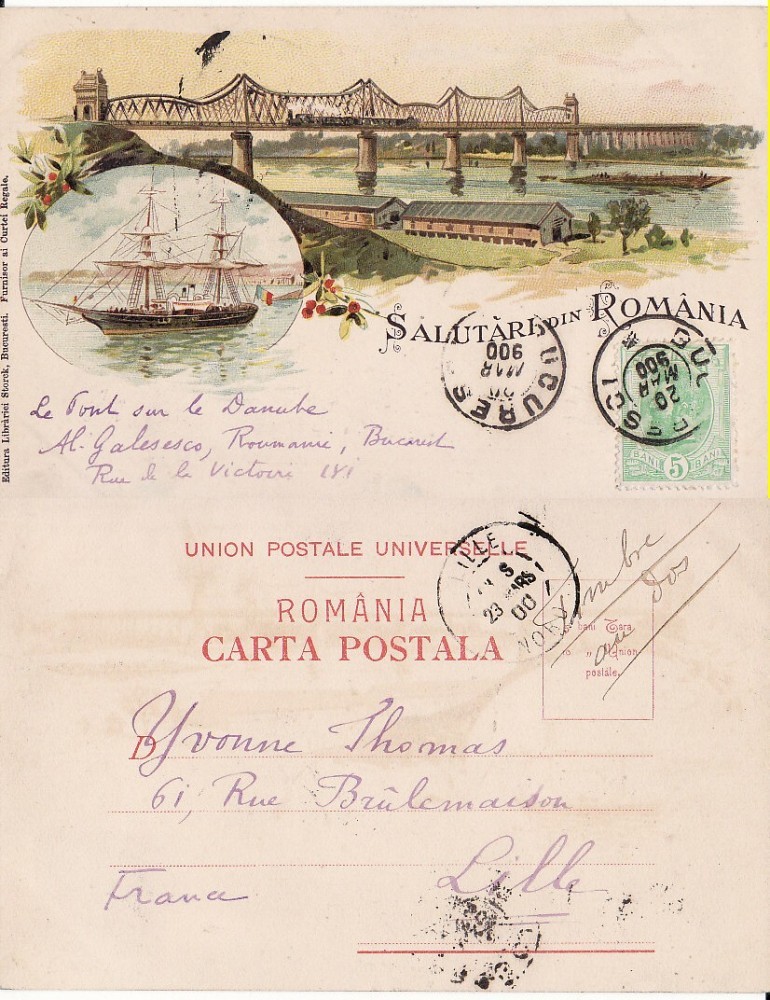 Editura Librăriei Storck, Bucuresti. Furnisor al Curtei Regale.
SALUTĂRI DIN ROMÂNIA
BUCURESCI
20
MAR
900
BUCURESCI
20
MAR
900
BANI 5 BANI
Le Pont sur le Danube
Al. Galesesco, Roumanie, Bucarest
Rue de la Victoire 181
UNION POSTALE UNIVERSELLE
ROMÂNIA
CARTA POSTALA
LILLE
23 MARS
00
NORD
Timbre
au dos
bani Țara
10 „ Union
postále.
D
Yvonne Thomas
61, Rue Brûlemaison
Lille
France